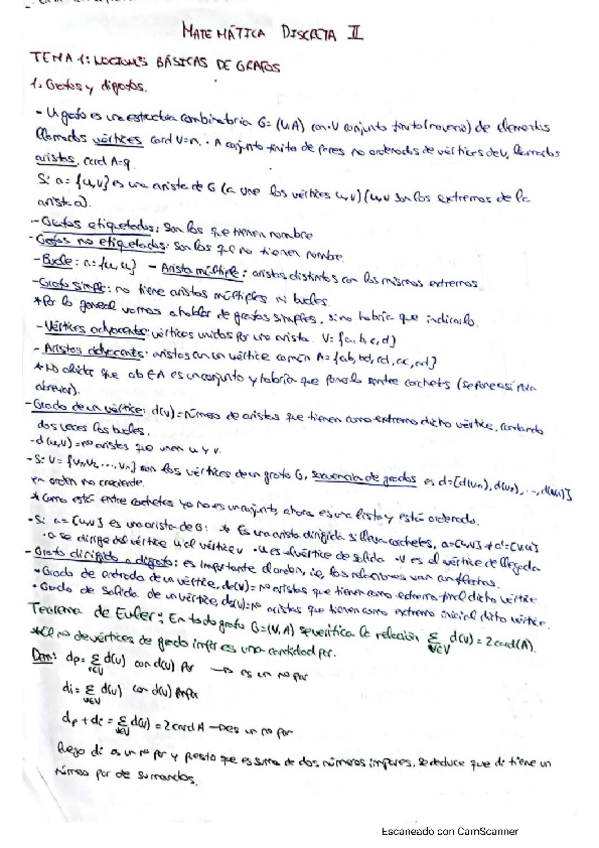 MATEMÁTICA DISCRETA II
TEMA 1: NOCIONES BÁSICAS DE GRAFOS
1. Grafos y digrafos.
- Un grafo es una estructura combinatoria G=(V,A) con V conjunto finito (no vacío) de elementos
llamados vértices card V=n. A conjunto finito de pares no ordenados de vértices de V, llamados
aristas, card A=q.
Si a={u,v} es una arista de G (a une los vértices u,v) (u,v son los extremos de la
arista).
- Grafos etiquetados: son los que tienen nombre
- Grafos no etiquetados: son los que no tienen nombre.
- Bucle: a={u,u} - Arista múltiple: aristas distintas con los mismos extremos
- Grafo simple: no tiene aristas múltiples ni bucles.
* Por lo general vamos a hablar de grafos simples, sino habría que indicarlo.
- Vértices adyacentes: vértices unidos por una arista. V={a,b,c,d}
- Aristas adyacentes: aristas con un vértice común A={ab, bd, cd, ac, ad}
* No olvidar que ab∈A es un conjunto y habría que ponerlo entre corchetes (se pone así para
abreviar).
- Grado de un vértice: d(v)=número de aristas que tienen como extremo dicho vértice, contando
dos veces los bucles.
- d(u,v)=nº aristas que unen u y v.
- Si V={v1,v2,...,vn} son los vértices de un grafo G, secuencia de grados es d=[d(v1),d(v2),...,d(vn)]
en orden no creciente.
* Como está entre corchetes ya no es un conjunto, ahora es una lista y está ordenado.
- Si a=[u,v] es una arista de G: * Es una arista dirigida si lleva corchetes, a=[u,v]≠a'=[v,u]
· a se dirige del vértice u al vértice v · u es el vértice de salida · v es el vértice de llegada
- Grafo dirigido o digrafo: es importante el orden, i.e, las relaciones van con flechas.
* Grado de entrada de un vértice, de(v)=nº aristas que tienen como extremo final dicho vértice
* Grado de salida de un vértice, ds(v)=nº aristas que tienen como extremo inicial dicho vértice.
Teorema de Euler: En todo grafo G=(V,A) se verifica la relación Σ d(v)=2card(A).
v∈V
* El nº de vértices de grado impar es una cantidad par.
Dem: dp = Σ d(v) con d(v) par → es un nº par
v∈V
di = Σ d(v) con d(v) impar
v∈V
dp + di = Σ d(v) = 2 card A → es un nº par
v∈V
luego di es un nº par y puesto que es suma de dos números impares, se deduce que di tiene un
número par de sumandos.
Escaneado con CamScanner